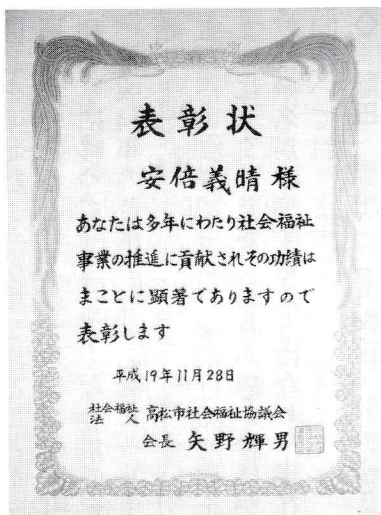 表彰状
安倍義晴様
あなたは多年にわたり社会福祉
事業の推進に貢献されその功績は
まことに顕著でありますので
表彰します
平成19年11月28日
社会福祉法人 高松市社会福祉協議会
会長 矢野輝男